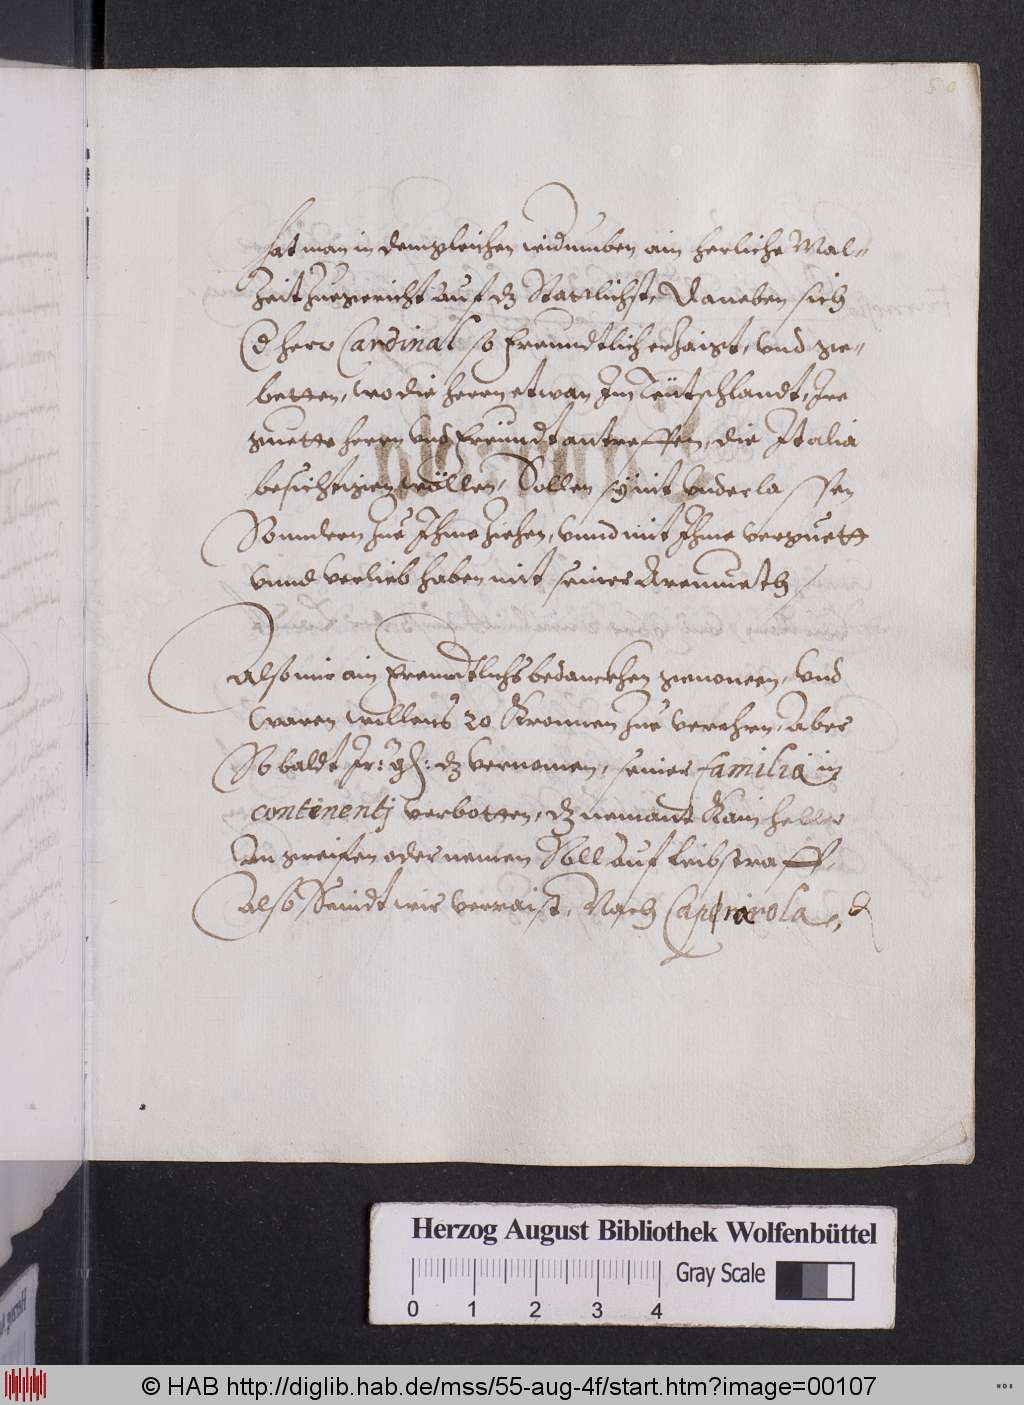 50
hat man in dempleichen widumben ain herliche Mal-
Zeit Zuegericht auf dz Stattlichst, Daneben sich
d herr Cardinal so freundtlich erzaigt, vnd ge-
betten, wo die herrn etwan Im Teütschlandt, Ire
guette herrn vnd freündt antreffen, die Italia
besichtigen wöllen, Sollen sy nit vnderlassen
Sonndern Zue Ihme Ziehen, vnnd mit Ihme verguett
vnnd verlieb haben mit seiner Armueth
Also wir ain freundtlichs bedanckhen genomen, vnd
waren willens 20 Kronnen Zue verehrn, Aber
So baldt Ir: gl: dz vernomen, seiner familia in
continentj verbotten, dz nemandt Kain heller
An greifen oder nemen Soll auf Leibstraff,
Also Seindt wir verraist, Nach Caprarola,
Herzog August Bibliothek Wolfenbüttel
0 1 2 3 4
Gray Scale
© HAB http://diglib.hab.de/mss/55-aug-4f/start.htm?image=00107